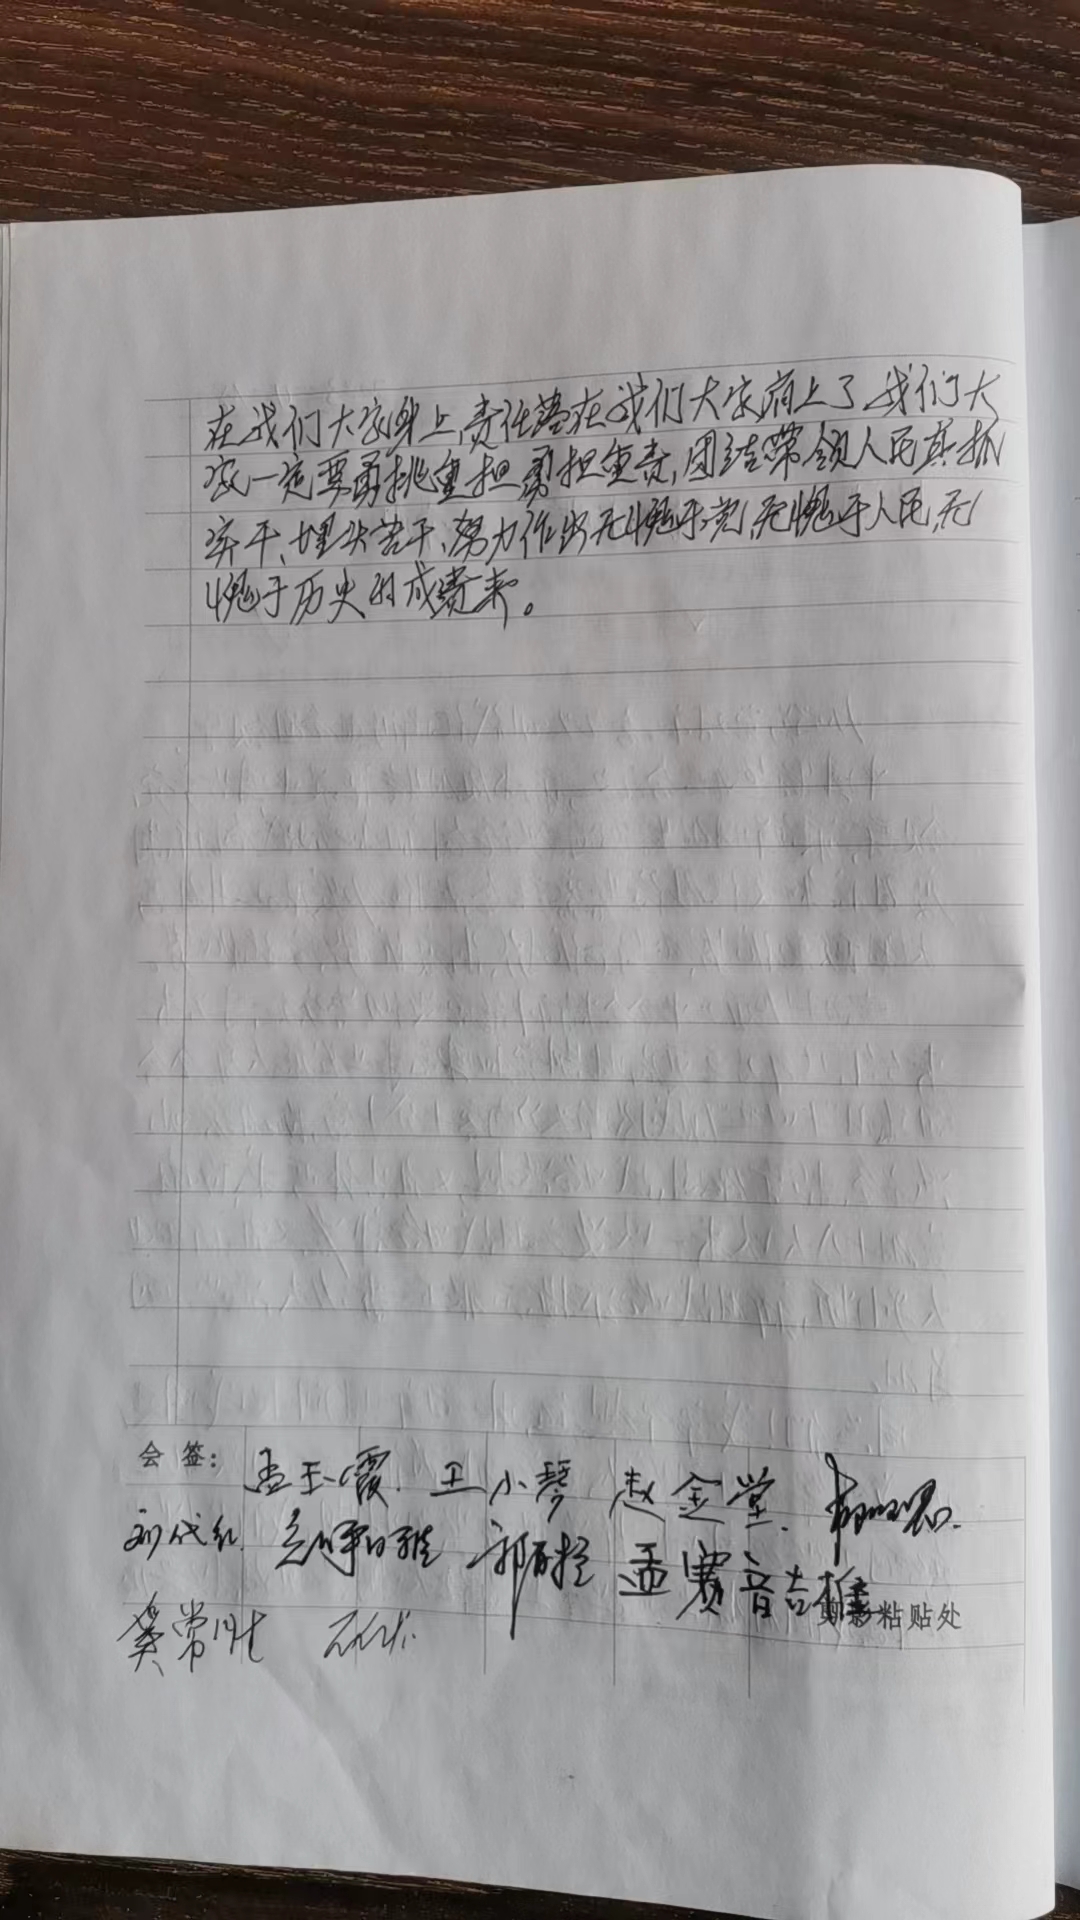 在我们大家身上,责任落在我们大家肩上了,我们大
家一定要勇挑重担,勇担重责,团结带领人民真抓
实干、埋头苦干、努力作出无愧于党,无愧于人民,无
愧于历史的成绩来。
会 签: 孟玉霞. 王小琴 赵金堂.
刘代红. 郭 孟赛音吉雅
剪影粘贴处
吴常胜